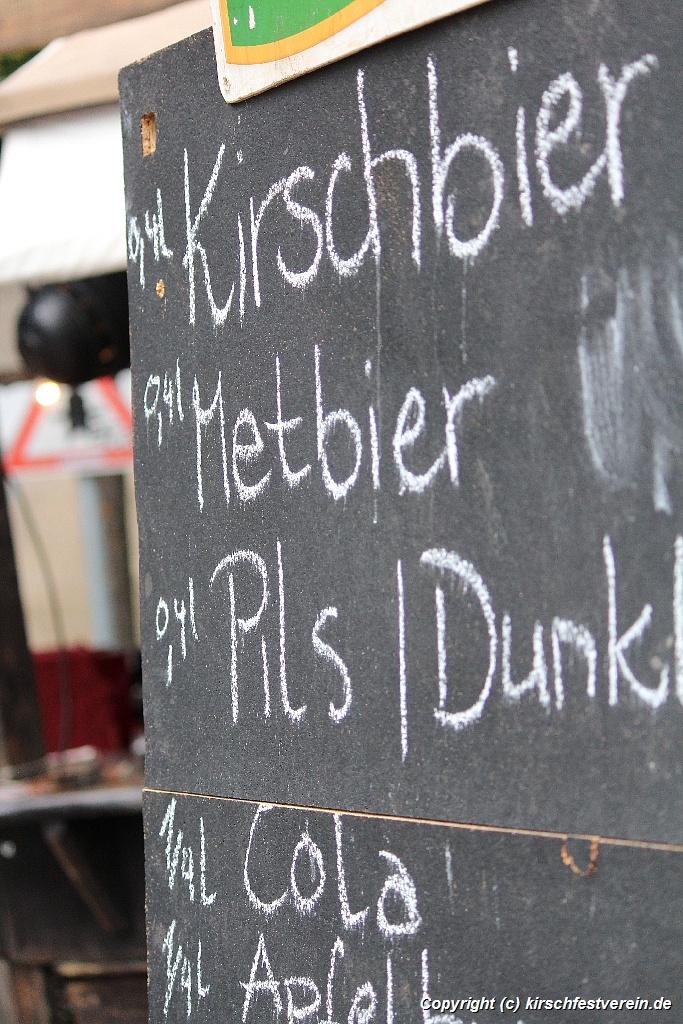 0,4L Kirschbier
0,4L Metbier
0,4L Pils | Dunkl
1/4L Cola
1/4L Apfel
Copyright (c) kirschfestverein.de